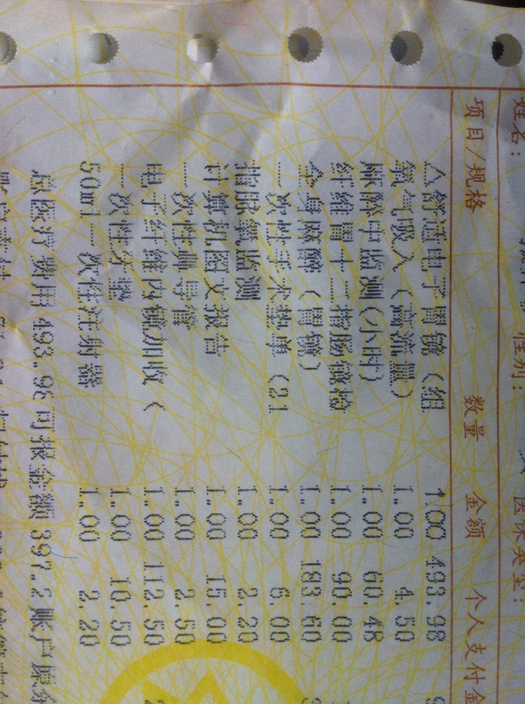 姓名： 性别： 医保类型：
项目/规格 数量 金额 个人支付金
△舒适电子胃镜（组 1.00 493.98
氧气吸入（高流量） 1.00 4.50
麻醉中监测（小时） 1.00 60.48
纤维胃十二指肠镜检 1.00 90.00
全身麻醉（胃镜） 1.00 183.60
一次性手术垫单（31 1.00 6.00
指脉氧监测 1.00 2.20
计算机图文报告 1.00 15.00
一次性鼻导管 1.00 3.50
电子纤维内镜加收（ 1.00 112.50
一次性 1.00 10.50
50ml一次性注射器 1.00 2.20
总医疗费用 493.98 可报金额 397.2 账户原余